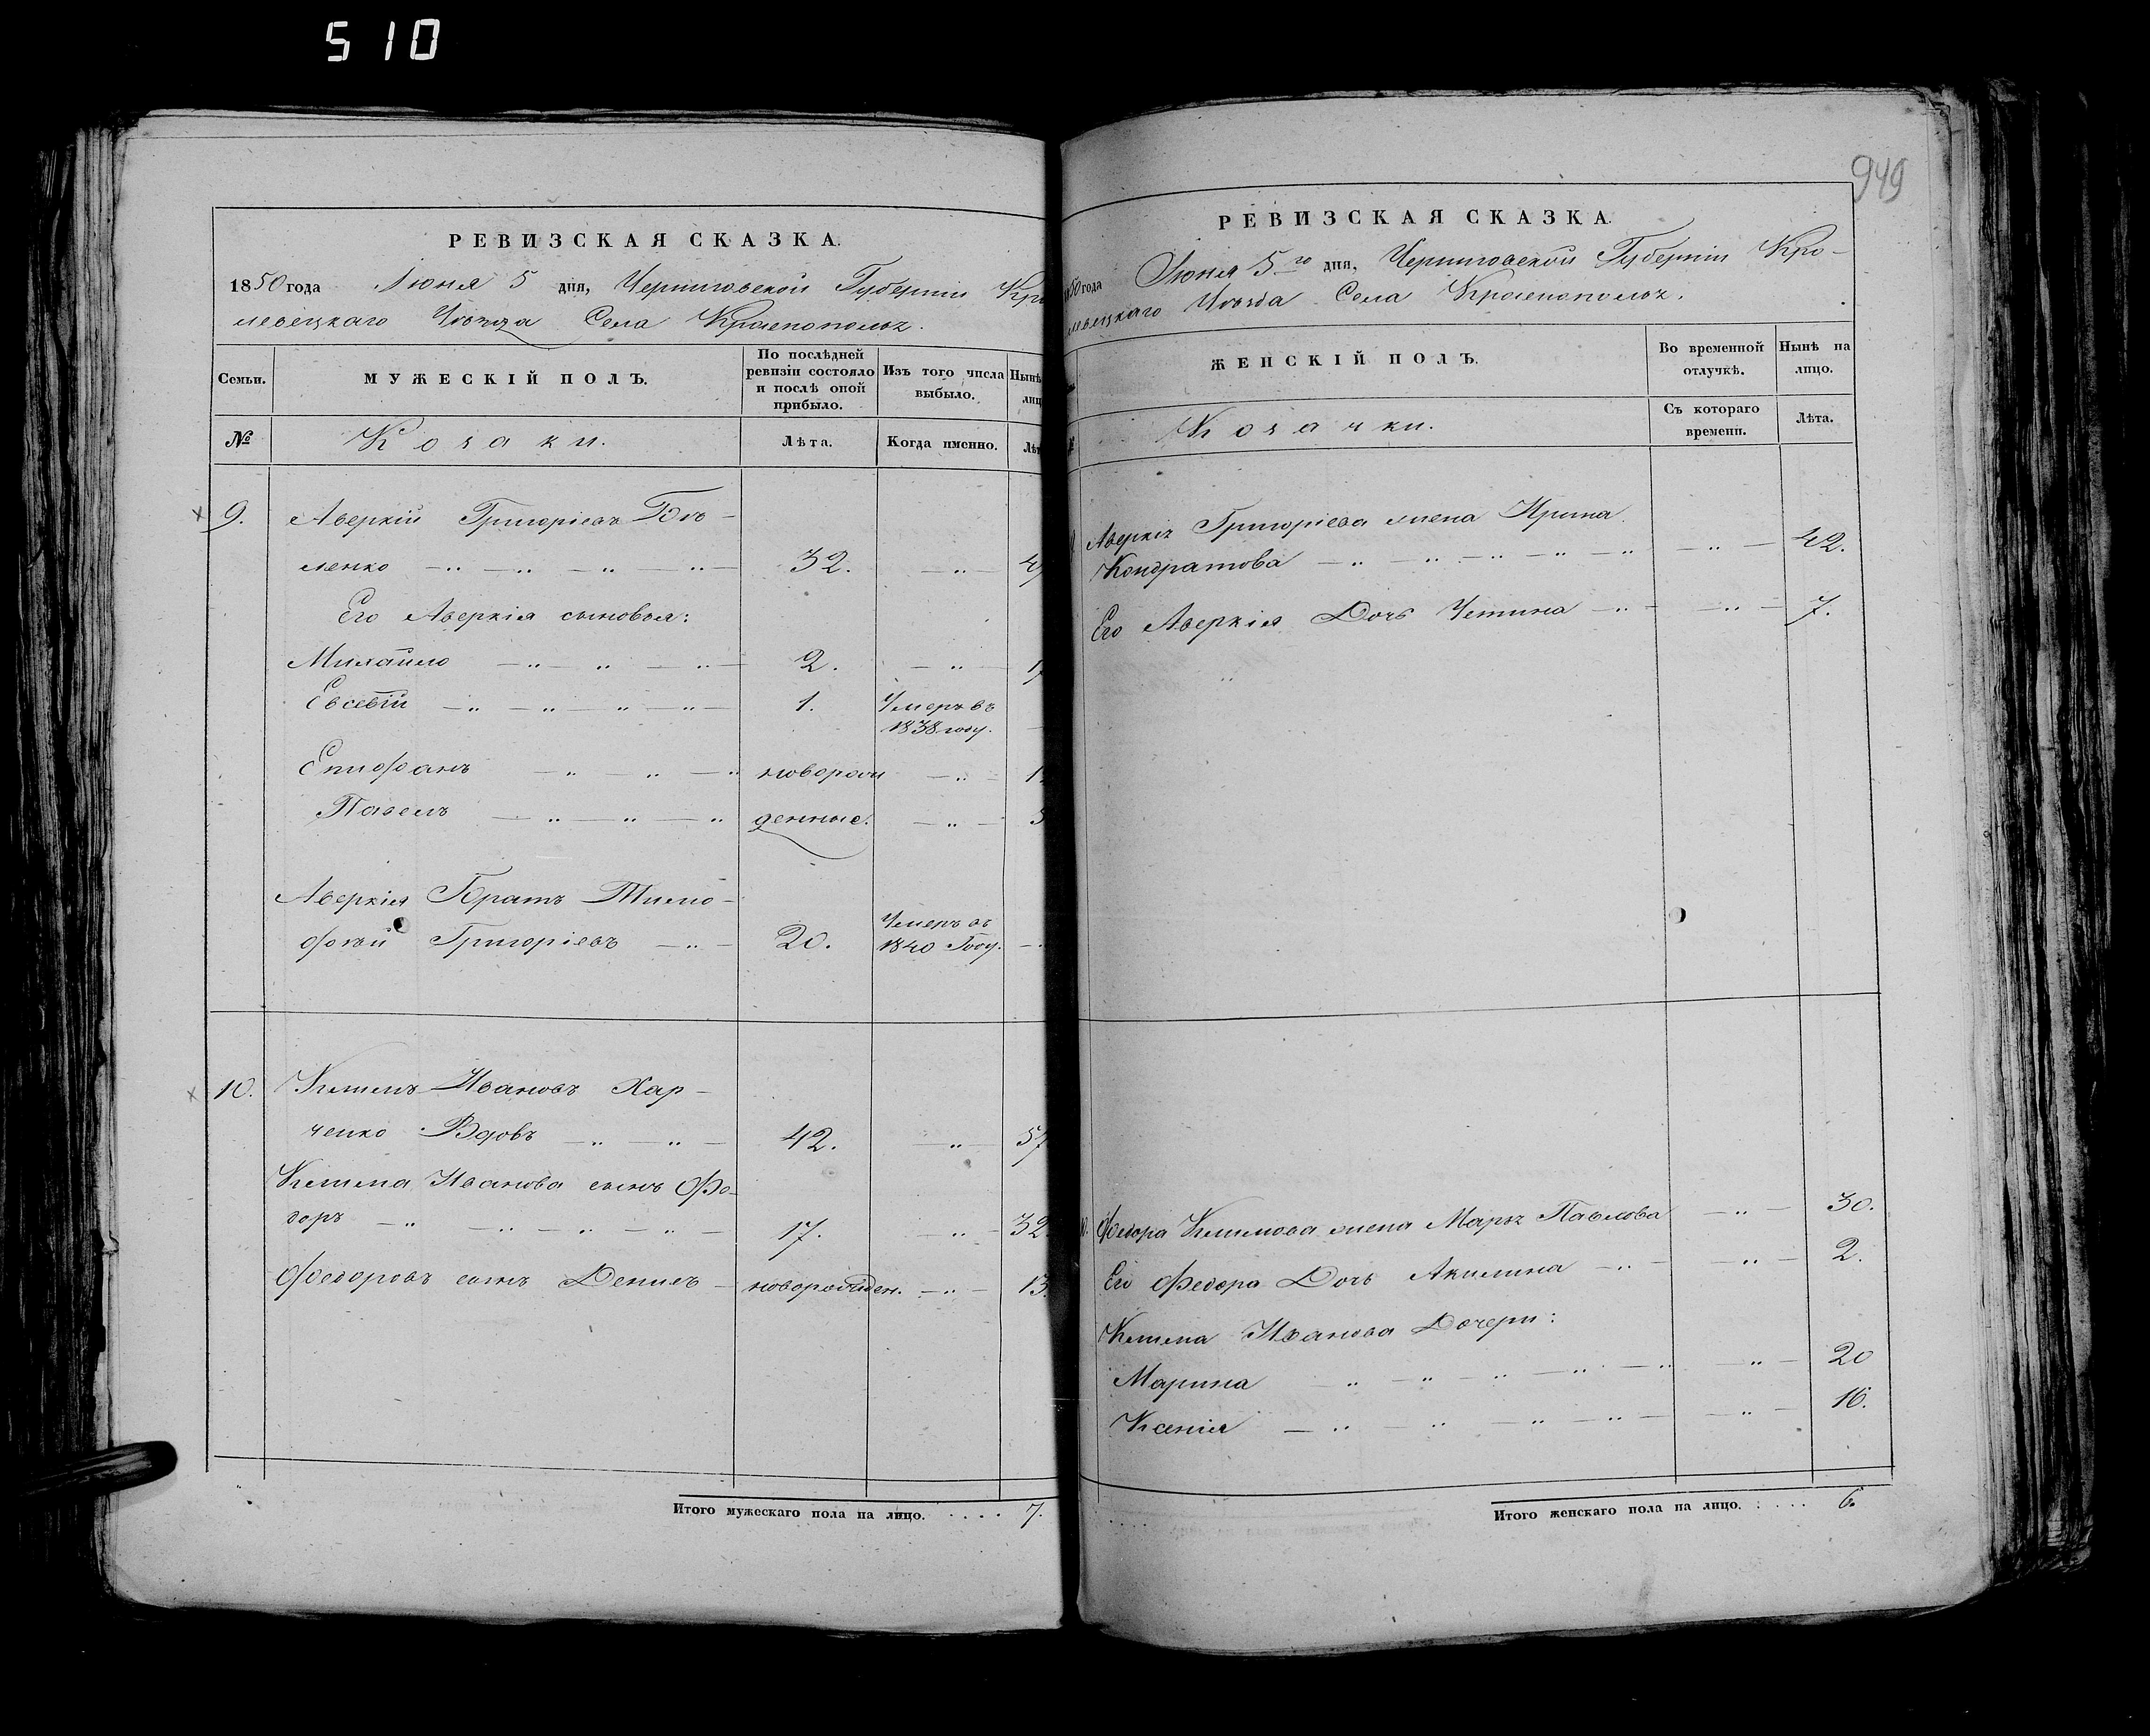 510
РЕВИЗСКАЯ СКАЗКА.
1850 года Июня 5 дня, Черниговской Губерніи Кро
левецкаго Уѣзда Села
Семьи.
МУЖЕСКІЙ ПОЛЪ.
По послѣдней ревизіи состояло и послѣ оной прибыло.
Изъ того числа выбыло.
Нынѣ
лиц
№
Козаки.
Лѣта.
Когда именно.
Лѣт
9. Аверкій Григоріевъ Бов-
ленко 32.
Его Аверкія сыновья:
Михайло 2.
Евсевій 1. Умеръ въ
1838 году.
Епифанъ новорож
Павелъ денные.
Аверкія Братъ Тимо-
фѣй Григоріевъ 20. Умеръ въ
1840 Году.
10. Климъ Ивановъ Хар-
ченко Вдовъ 42. 57
Клима Иванова сынъ Фе-
доръ 17. 32
Федоровъ сынъ Денисъ новорожден. 13.
Итого мужескаго пола на лицо. .... 7.
949
РЕВИЗСКАЯ СКАЗКА.
1850 года Июня 5го дня, Черниговской Губерніи Кро-
левецкаго Уѣзда Села
ЖЕНСКІЙ ПОЛЪ.
Во временной отлучкѣ.
Нынѣ на лицо.
Козачки.
Съ котораго времени.
Лѣта.
Аверкія Григоріева жена Ирина
Кондратова 42.
Его Аверкія Дочь Устина 7.
Федора Климова жена Марья Павлова 30.
Его Федора Дочь Акилина 2.
Клима Иванова Дочери:
Марина 20
Ксенія 16.
Итого женскаго пола на лицо. .... 6.